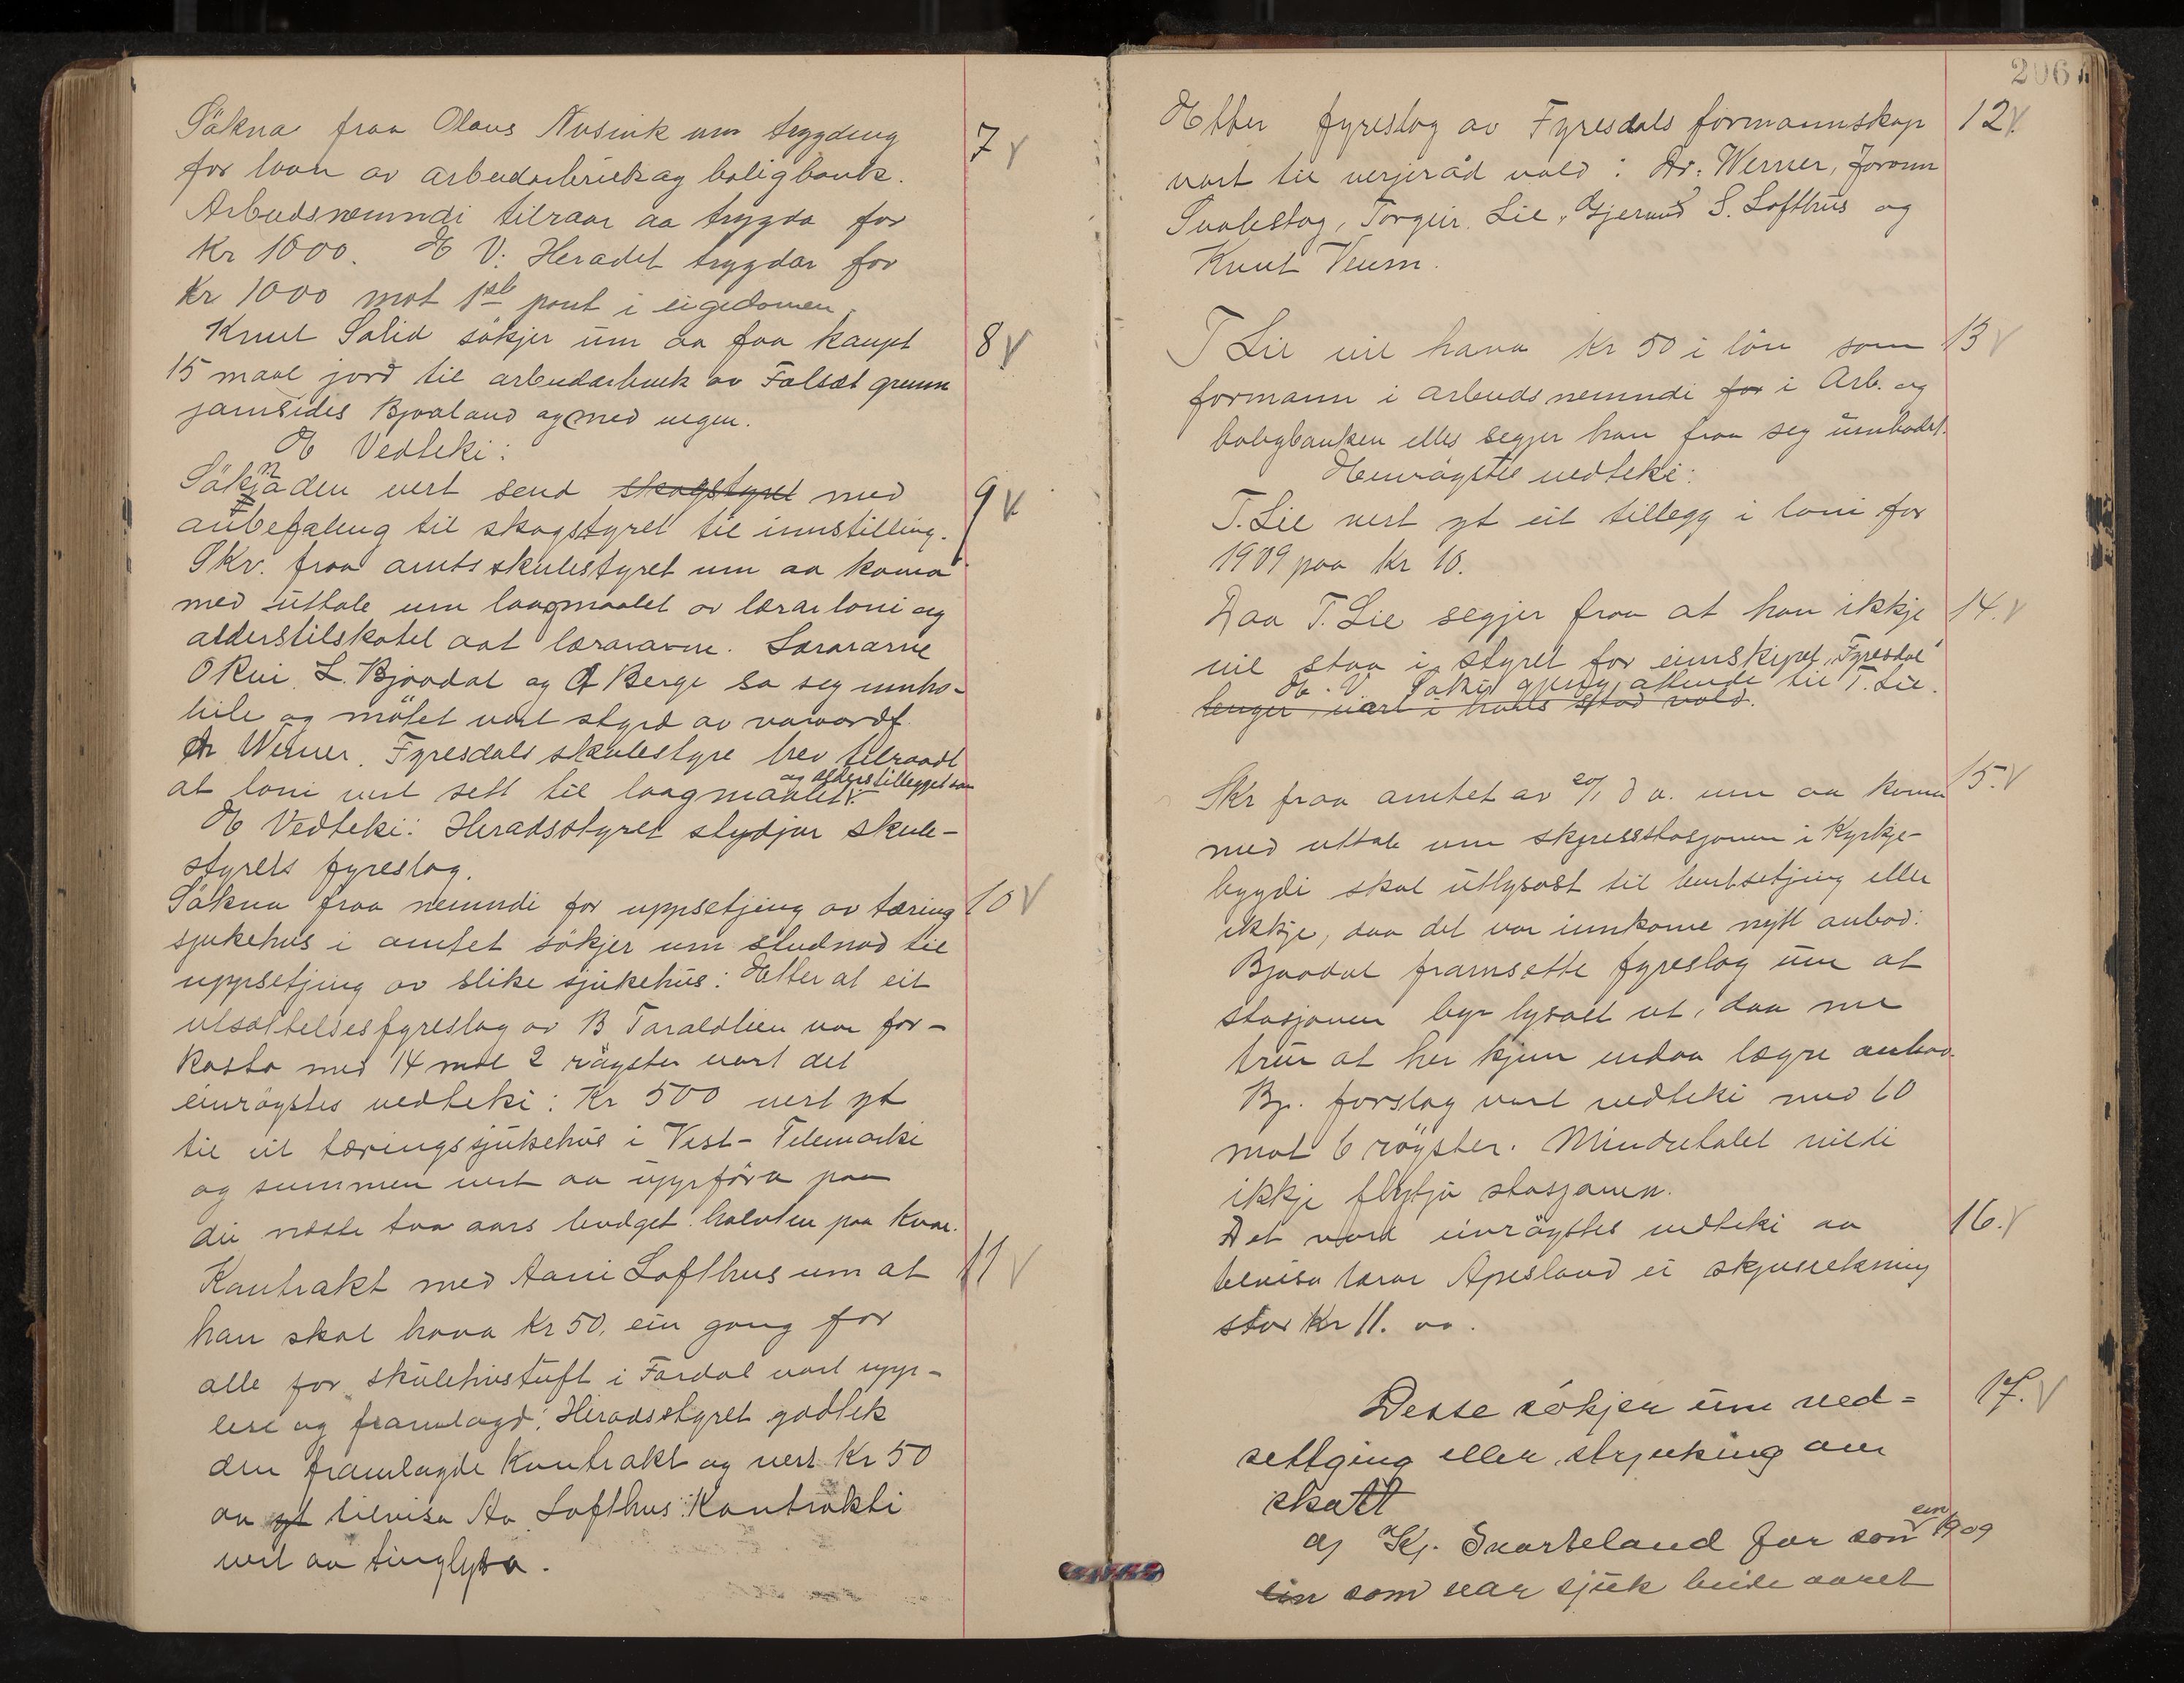 Sökna fraa Olaus Nusink um trygding 7 V
for laan av arbeidarbruk og boligbank.
Arbeidsnemndi tilraar aa trygda for
Kr 1000. E V: Heradet trygdar for
Kr 1000 mot 1ste pant i eigedomen.
Knut Salid sökjer um aa faa kaupt 8 V
15 maal jord til arbeidarbruk av Falsæt grunn
jamsides Bjaaland og ned vegen.
E Vedteki:
Söknaden vert send skogstyret med 9 V
anbefaling til skogstyret til innstilling.
Skr. fraa amtsskulestyret um aa koma
med uttale um laagmaalet av lærarloni og
alderstilskotet aat lærarane. Lærarane
O Rui, L. Bjaadal og A Berge sa seg innha-
bile og mötet vart styrd av varaordf.
Dr Werner. Fyresdals skulestyre hev tilraadt
at loni vert sett til laagmaalet og alderstillegget
E Vedteki: Heradsstyret stydjar skule-
styrets fyreslag.
Sökna fraa nemndi for uppsetjing av tæring 10 V
sjukehus i amtet sökjer um studnad til
uppsetjing av slike sjukehus: Etter at eit
utsættelsesfyreslag av B Taraldlien var for-
kasta med 14 mot 2 röyster vart det
einröystes vedteki: Kr 500 vert yt
til eit tæringssjukehus i Vest-Telemarki
og summen vert aa uppföra paa
dei næste tvo aars budget. halvten paa kvar.
Kontrakt med Aani Lofthus um at 11 V
han skal hava Kr 50, ein gong for
alle for skulehustuft i Fardal vart upp-
lesi og framlagd: Heradsstyret godtek
den framlagde Kontrakt og vert Kr 50
aa yt tilvisa Aa Lofthus. Kontrakti
vert aa tinglysa.
206
Etter fyreslag av Fyresdals formannskap 12 V
vart til verjeråd vald: Dr. Werner, Jorunn
Svalestog, Torgeir Lie, Gjermund S. Lofthus og
Knut Veum.
T Lie vil hava Kr 50 i lön som 13 V
formann i arbeidsnemndi for i Arb. og
boligbanken elles segjer han fraa seg umbodet.
Einröystes vedteki:
T. Lie vert yt eit tillegg i loni for
1909 paa Kr 10.
Daa T. Lie segjer fraa at han ikkje 14. V
vil staa i styret for eimskipet "Fyresdal"
E. V. Saki gjeng attende til T. Lie.
lenger, vart i hans stad vald.
Skr fraa amtet av 20/1 d a. um aa koma 15. V
med uttale um skyssstasjonen i Kyrkje-
bygdi skal utlysast til burtsetjing eller
ikkje, daa det var innkome nytt anbod:
Bjaadal framsette fyreslag um at
stasjonen byr lysast ut, daa me
trur at her kjem endaa lægre anbod.
Bj. forslag vart vedteki med 10
mot 6 röyster. Mindretalet vilde
ikkje flytja stasjonen.
Det vard einröystes vedteki aa 16. V
tilvisa lærar Apesland ei skyssrekning
stor Kr 11. 00.
Desse sökjer um ned= 17. V
settging eller strjuking av
skatt
a) Kj. Svarteland for son ein 1909
ein som var sjuk heile aaret